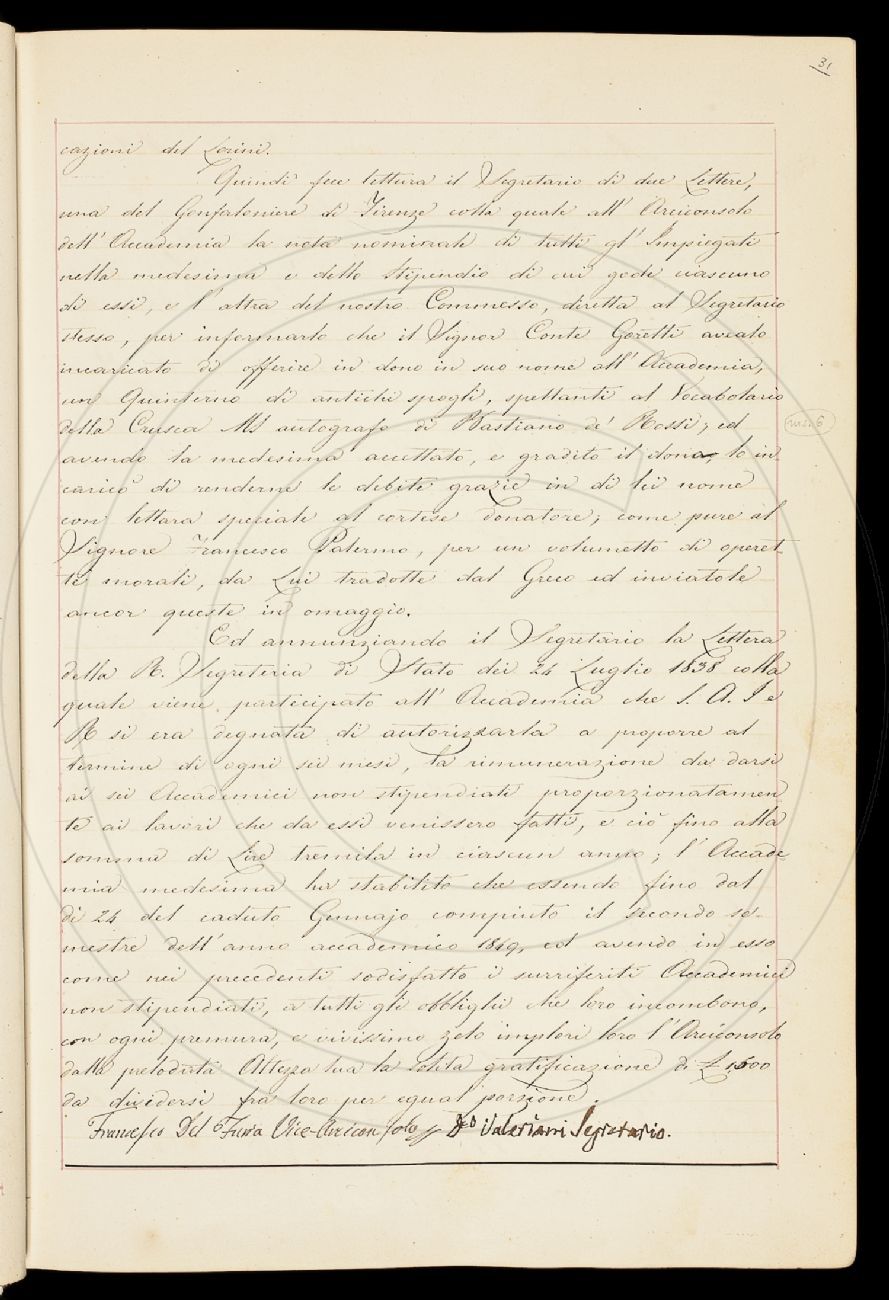 31
cazioni del Lorini.
Quindi fece lettura il Segretario di due Lettere,
una del Gonfaloniere di Firenze colla quale all' Arciconsolo
dell' Accademia la nota nominale di tutti gl' Impiegati
nella medesima e dello stipendio di cui gode ciascuno
di essi, e l' altra del nostro Commesso, diretta al Segretario
stesso, per informarlo che il Signor Conte Goretti avealo
incaricato di offerire in dono in suo nome all' Accademia,
un Quinterno di antichi spogli, spettanti al Vocabolario
della Crusca MS autografo di Bastiano de' Rossi; ed
avendo la medesima accettato, e gradito il dono, lo in
caricò di renderne le debite grazie in di lei nome
con lettara speciale al cortese donatore; come pure al
Signore Francesco Palermo, per un volumetto di operet
te morali, da Lui tradotte dal Greco ed inviatole
ancor queste in omaggio.
Ed annunziando il Segretario la Lettera
della R. Segreteria di Stato dei 24 Luglio 1838 colla
quale viene participato all' Accademia che S. A. I e
R si era degnata di autorizzarla a proporre al
termine di ogni sei mesi, la rimunerazione da darsi
ai sei Accademici non stipendiati proporzionatamen
te ai lavori che da essi venissero fatti, e ciò fino alla
somma di Lire tremila in ciascun anno; l' Accade
mia medesima ha stabilito che essendo fino dal
dì 24 del caduto Gennajo compiuto il secondo se-
mestre dell' anno accademico 1849, ed avendo in esso
come nei precedenti sodisfatto i surriferiti Accademici
non stipendiati, a tutti gli obblighi che loro incombono,
con ogni premura, e vivissimo zelo implori loro l' Arciconsolo
dalla prelodata Altezza sua la solita gratificazione di £ 1,500
da dividersi fra loro per egual porzione.
Francesco Del Furia Vice-Arciconsolo Dco Valeriani Segretario.
ins. 6